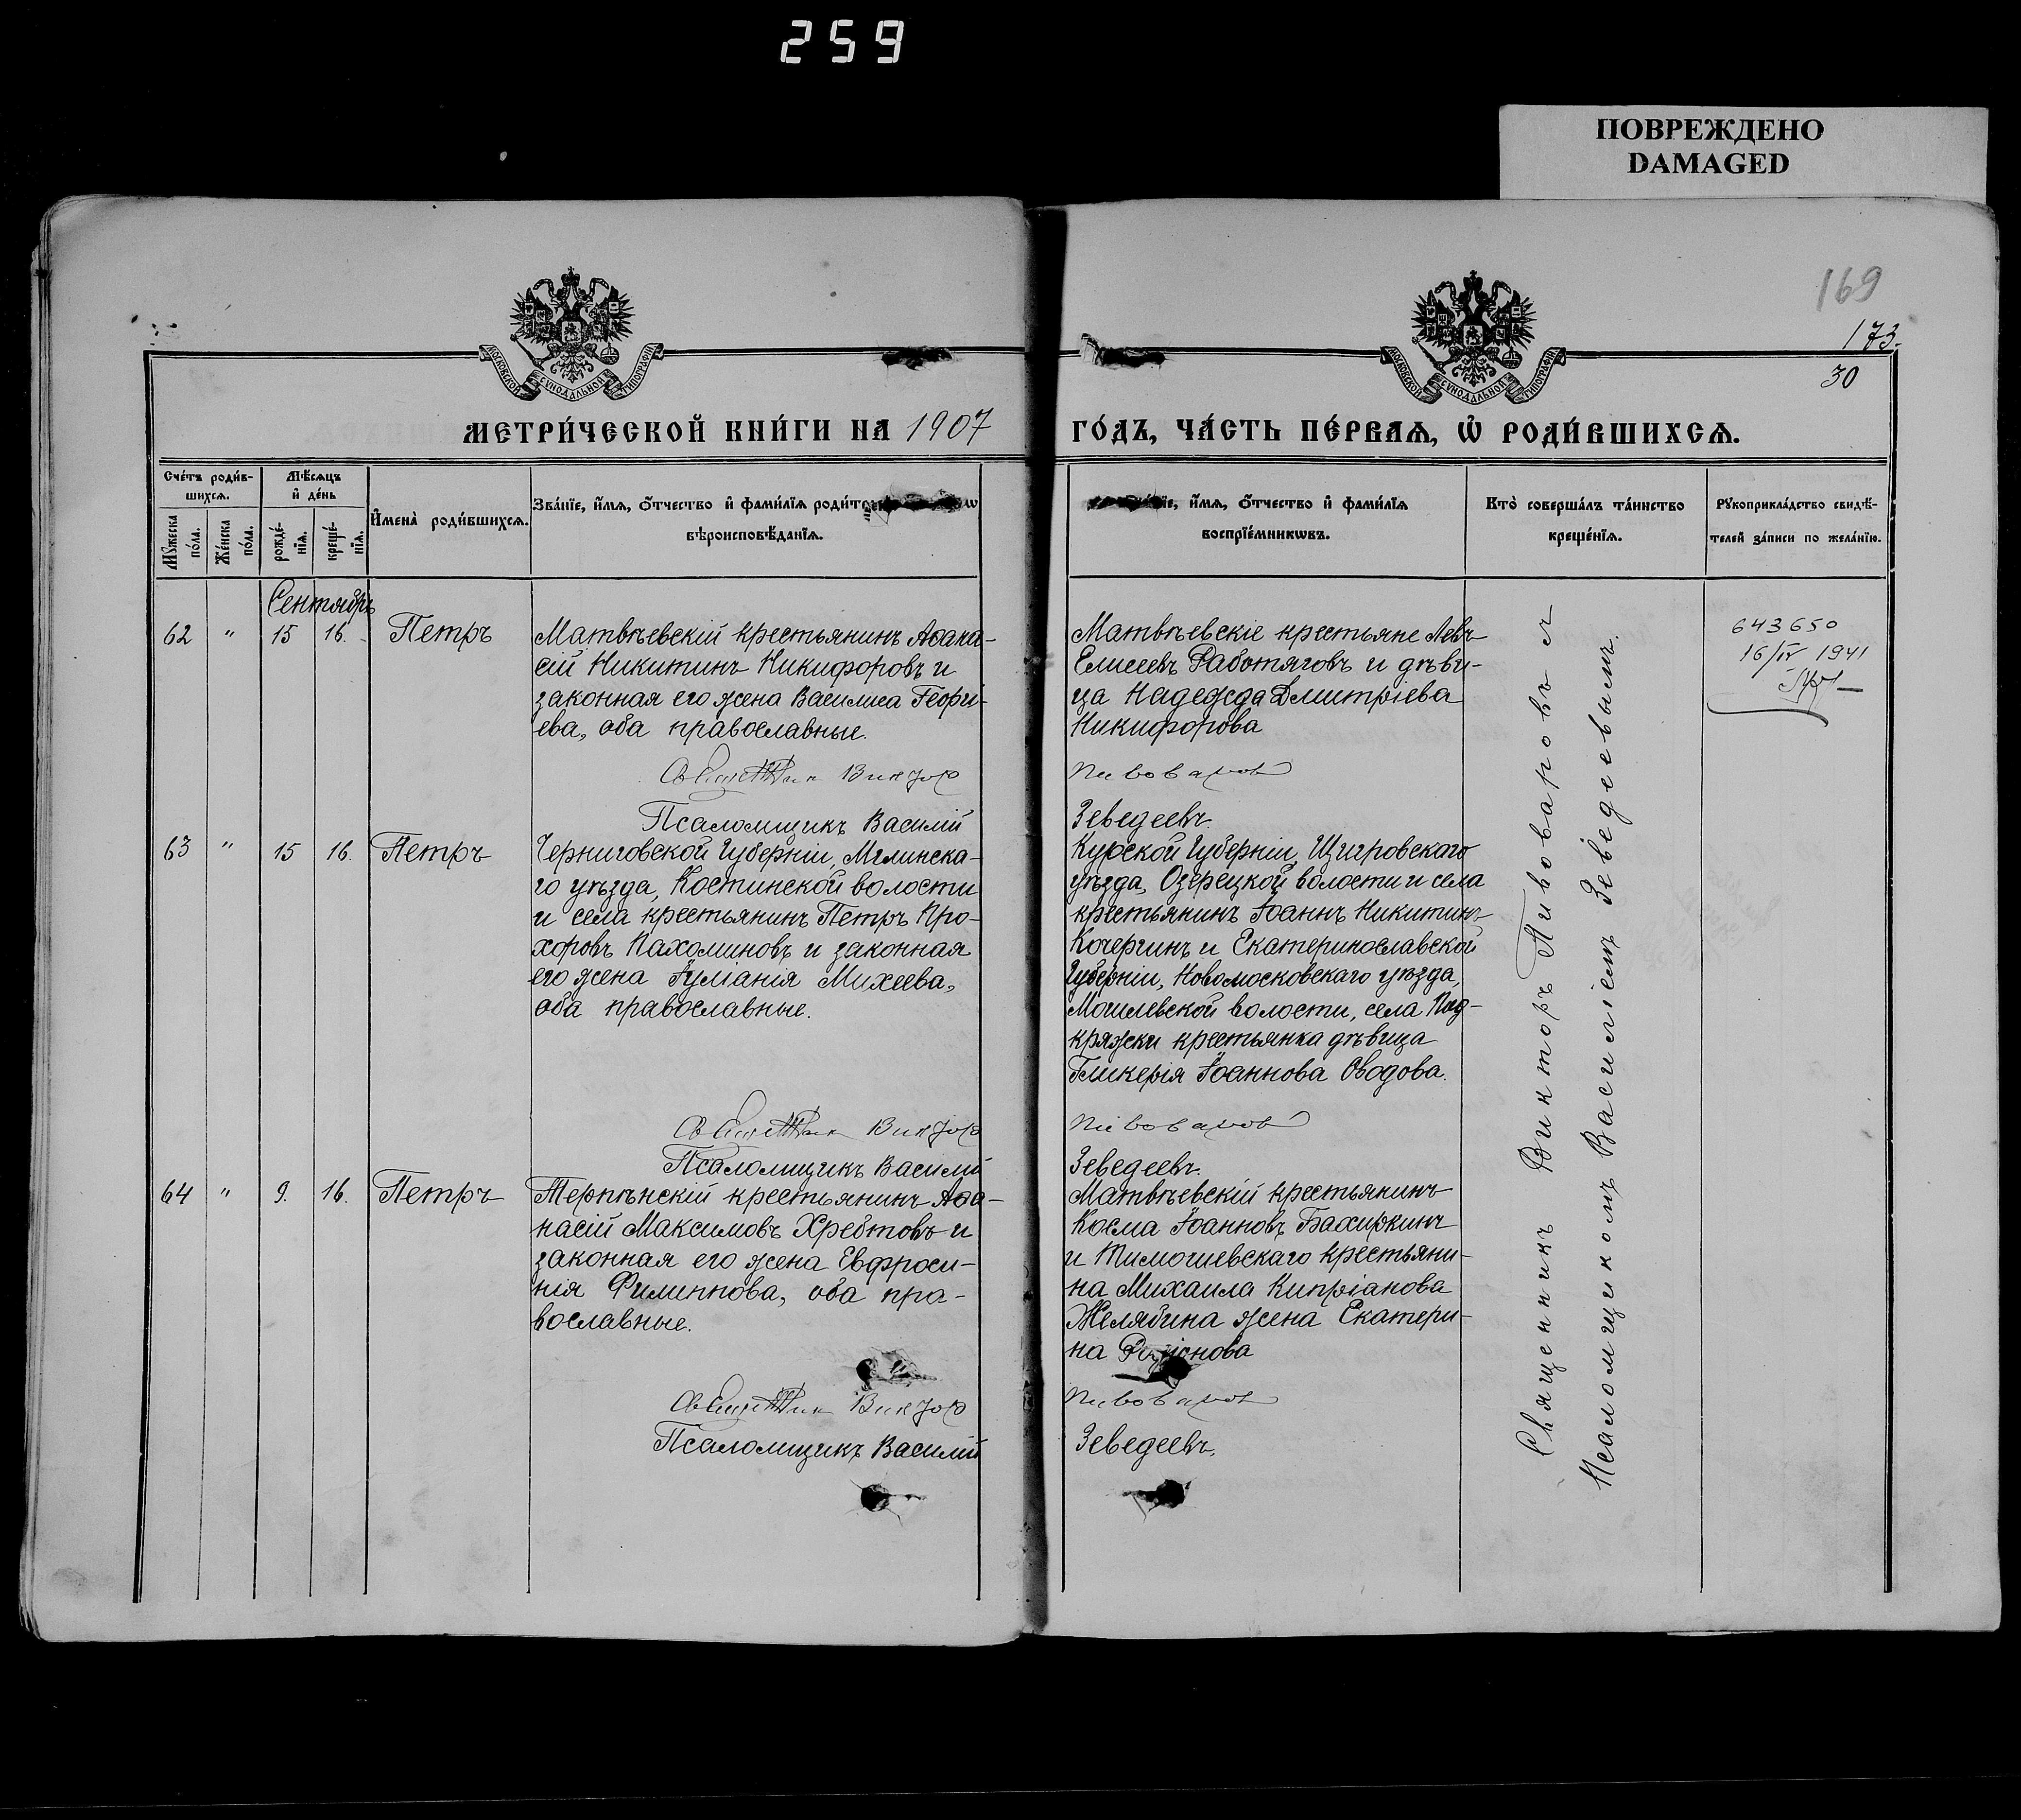 259
ПОВРЕЖДЕНО
DAMAGED
169
173.
30
МОСКОВСКОЙ СѴНОДАЛЬНОЙ ТИПОГРАФІИ
МОСКОВСКОЙ СѴНОДАЛЬНОЙ ТИПОГРАФІИ
МЕТРИ́ЧЕСКОЙ КНИ́ГИ НА 1907
ГО́ДЪ, ЧА́СТЬ ПЕ́РВАЯ, Ѡ҆ РОДИ́ВШИХСЯ.
Сче́тъ роди́в-
шихся.
Мꙋжеска по́ла.
Же́нска по́ла.
Мѣ́сяцъ
и҆ де́нь
рожде́-
нїя.
креще́-
нїя.
И҆мена̀ роди́вшихся.
Зва́нїе, и҆́мя, о҆́тчество и҆ фами́лїя
вѣроисповѣ́данїя.
и҆́мя, о҆́тчество и҆ фами́лїя
воспрїе́мникѡвъ.
Кто̀ соверша́лъ та́инство
креще́нїя.
Рꙋкоприкла́дство свидѣ́-
телей за́писи по жела́нїю.
Сентябрь
62 " 15 16. Петръ
Матвѣевскій крестьянинъ Аѳана-
сій Никитинъ Никифоровъ и
законная его жена Василиса Георгі-
ева, оба православные.
Священник Виктор
Псаломщикъ Василій
Матвѣевскіе крестьяне Левъ
Елисеевъ Работяговъ и дѣви-
ца Надежда Дмитріева
Никифорова
Пивоваров
Зеведеевъ.
643650
16/IV 1941
63 " 15 16. Петръ
Черниговской Губерніи, Мглинска-
го уѣзда, Костинской волости
и села крестьянинъ Петръ Про-
хоровъ Пахоминовъ и законная
его жена Іуліанія Михеева,
оба православные.
Священник Виктор
Псаломщикъ Василій
Курской Губерніи, Щигровскаго
уѣзда, Озерецкой волости и села
крестьянинъ Іоаннъ Никитинъ
Кочергинъ и Екатеринославской
Губерніи, Новомосковскаго уѣзда,
Могилевской волости, села Под-
кряжски крестьянка дѣвица
Гликерія Іоаннова Оводова.
Пивоваров
Зеведеевъ.
64 " 9. 16. Петръ
Терпѣнскій крестьянинъ Аѳа-
насій Максимовъ Хребтовъ и
законная его жена Евфроси-
нія Филиппова, оба пра-
вославные.
Священник Виктор
Псаломщикъ Василій
Матвѣевскій крестьянинъ
Косма Іоанновъ
и Тимошевскаго крестьяни-
на Михаила Кипріанова
Желябина жена Екатери-
на Родіонова
Пивоваров
Зеведеевъ.
Священникъ Викторъ Пивоваровъ съ
Псаломщикомъ Василіемъ Зеведеевымъ.